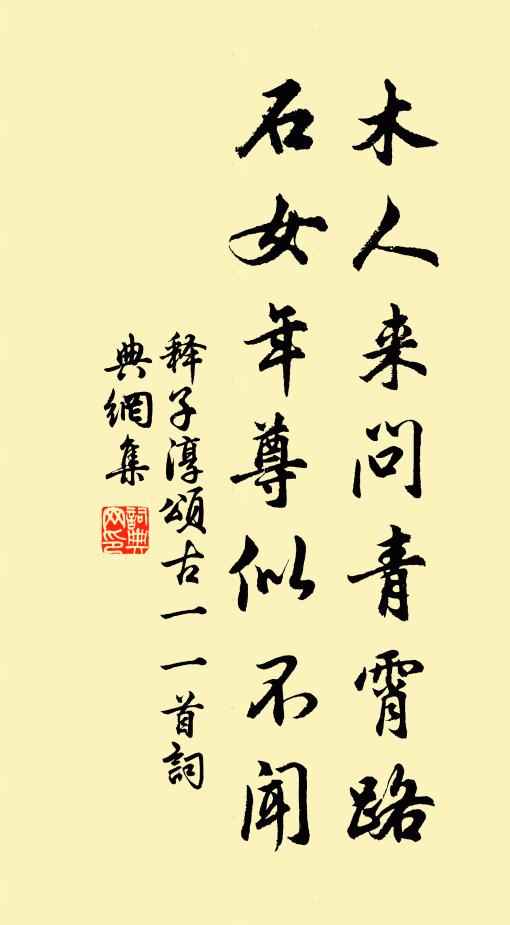 木人来問青霄路
石女年尊似不闻
释子淳頌古一一首詞
典網集
詞典
网印